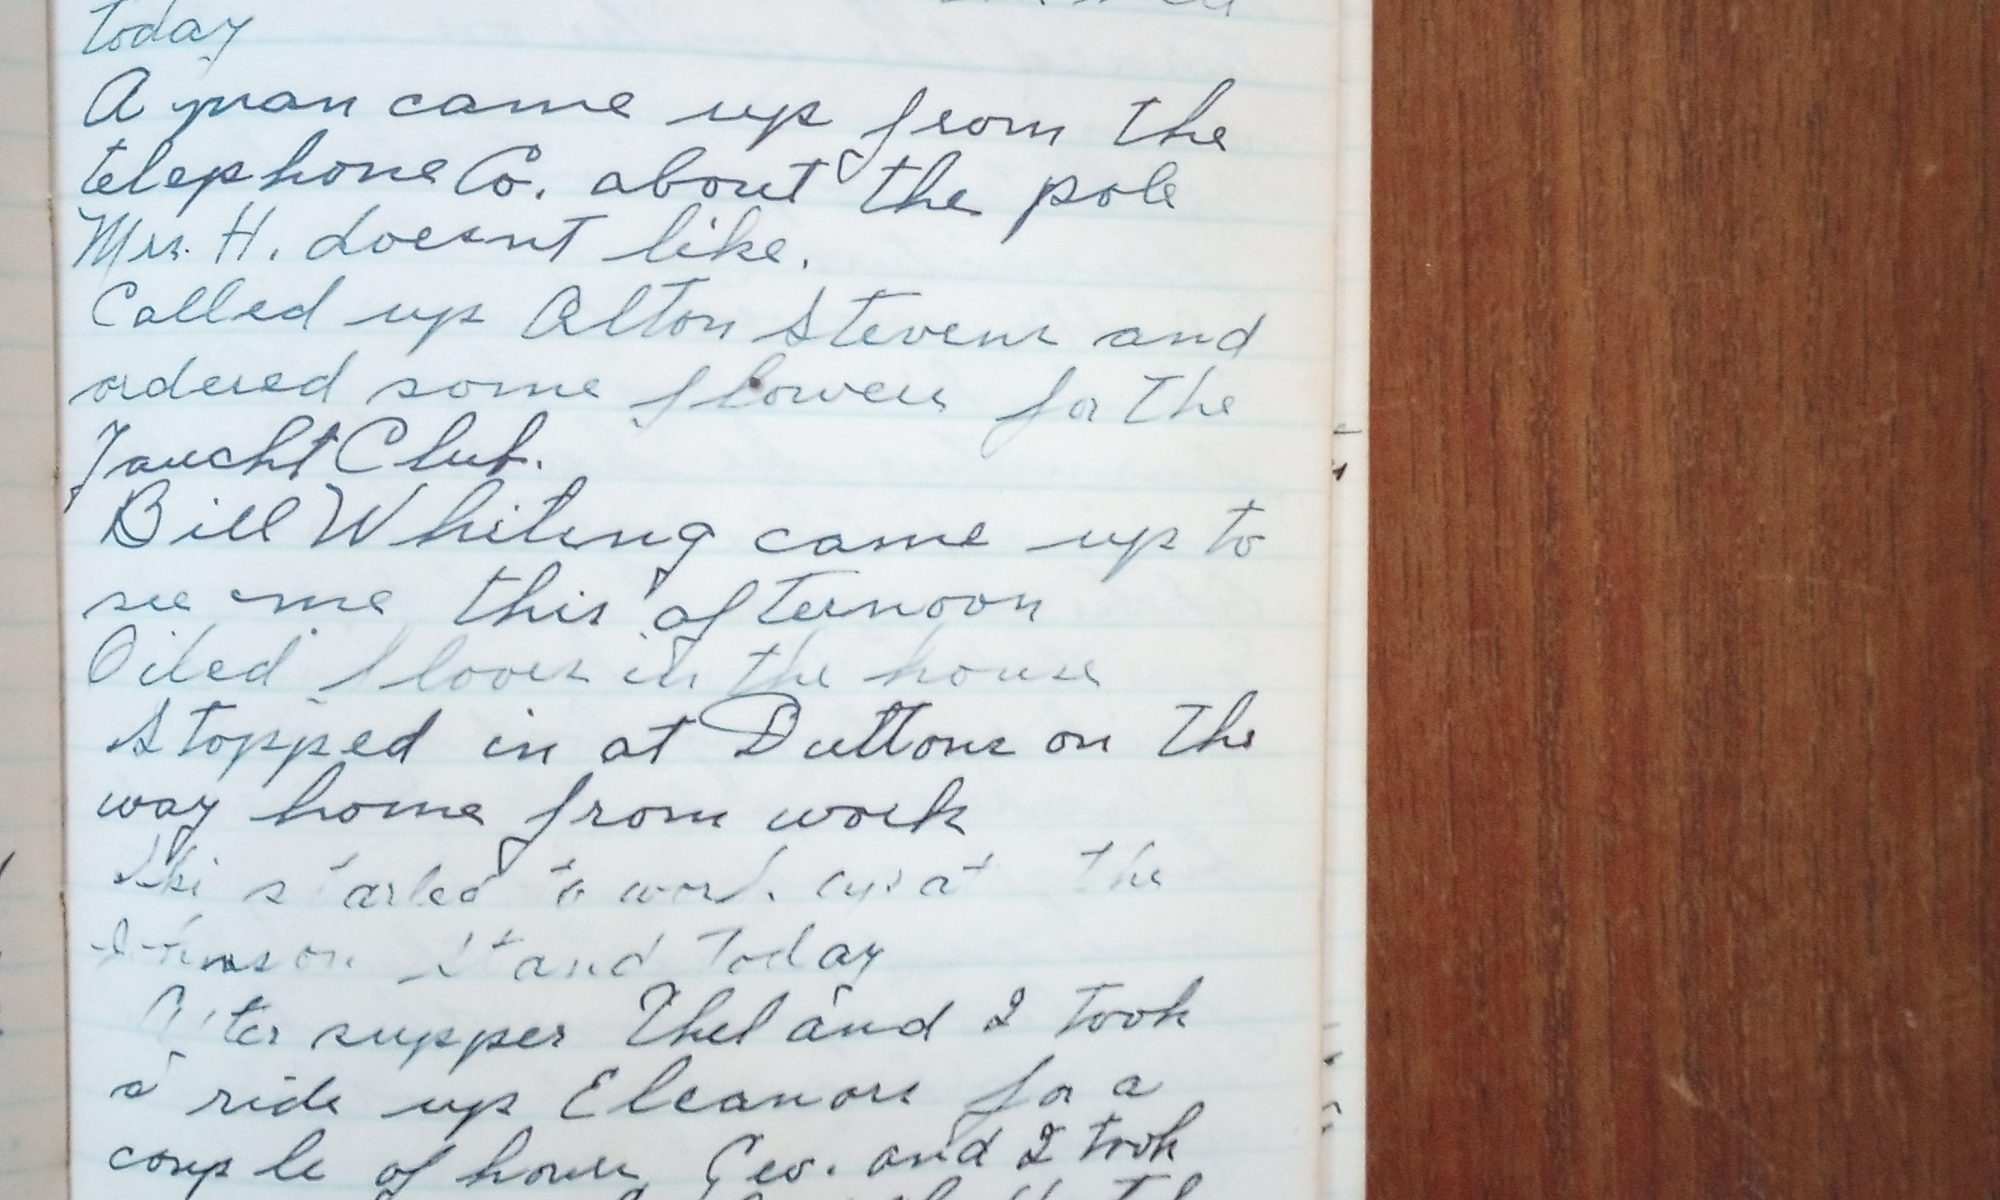 today
A man came up from the
telephone Co. about the pole
Mrs. H. doesnt like.
Called up Alton Stevens and
ordered some flowers for the
Yaucht Club.
Bill Whiting came up to
see me this afternoon
Oiled floors in the house
Stopped in at Duttons on the
way home from work
started to work up at the
Johnson Stand today
After supper Thel and I took
a ride up Eleanors for a
couple of hours Geo. and I took